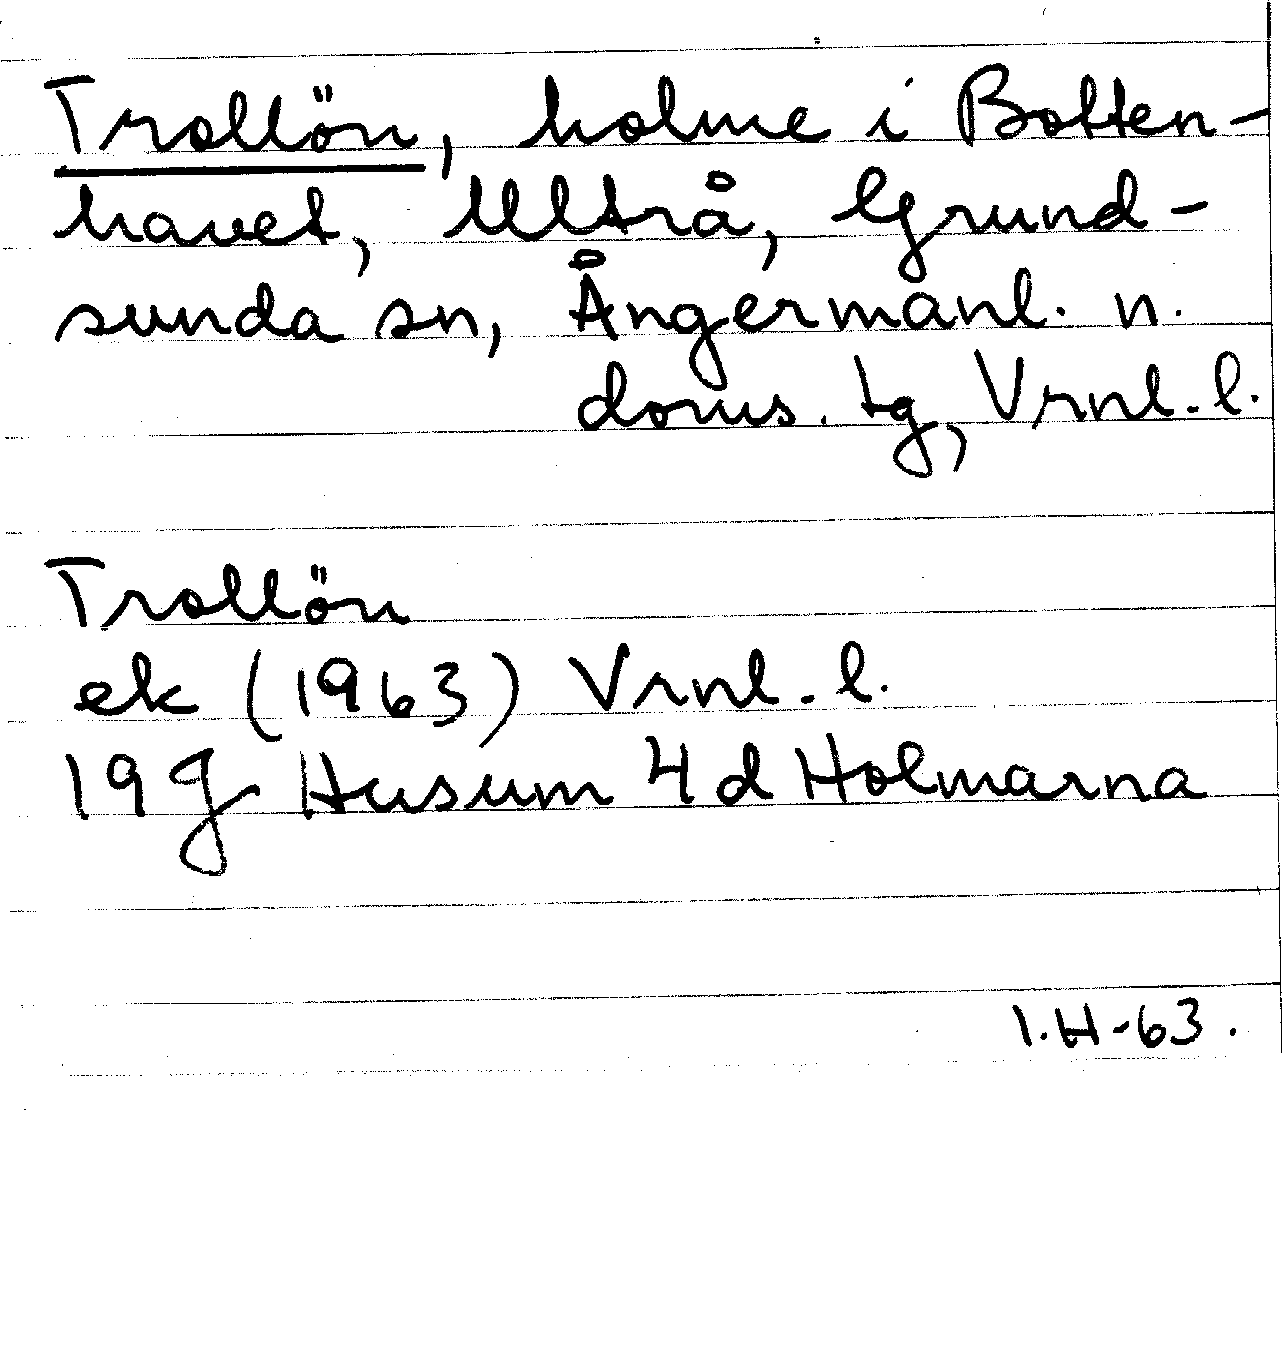 Trollön, holme i Botten-
havet, Ultrå, Grund-
sunda sn, Ångermanl. n.
doms. tg, Vrnl. l.
Trollön
ek (1963) Vrnl. l.
19 g Husum 4 d Holmarna
I. H-63.